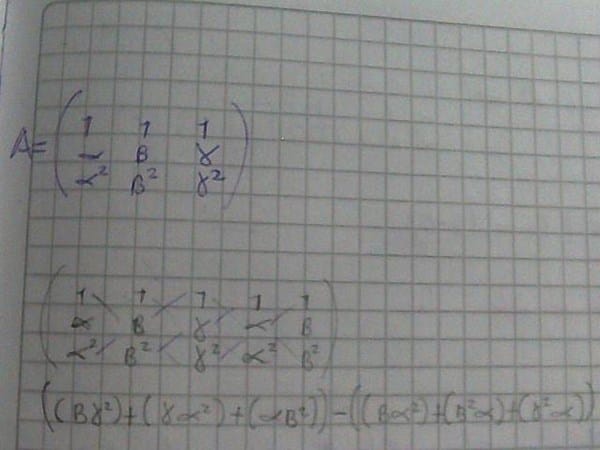 A = ( 1 1 1
α β γ
α² β² γ² )
( 1 1 1 1 1
α β γ α β
α² β² γ² α² β² )
((βγ²)+(γα²)+(αβ²))-((βα²)+(β²α)+(γ²α))